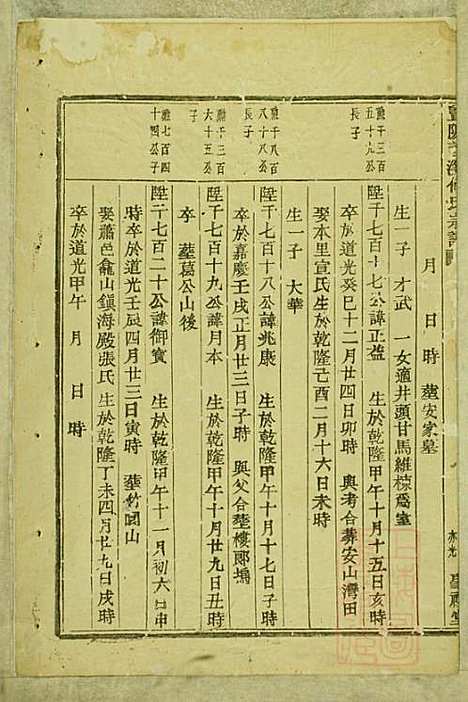 月　日　時　塟安家墓
生一子　才武　一女適井頭甘馬維椋爲室
勳千三百五十九公長子
陞千七百十七公諱正益　生於乾隆甲午十月十五日亥時
卒於道光癸巳十二月廿四日卯時　與考合葬安山灣田
娶本里宣氏生於乾隆己酉二月十六日未時
生一子　大華
勳千八百八十八公長子
陞千七百十八公諱兆康　生於乾隆甲午十月十七日子時
卒於嘉慶壬戌正月廿三日子時　與父合塟樓鄮塢
勳千三百六十五公子
陞千七百十九公諱月本　生於乾隆甲午十月廿九日丑時
卒　塟葛公山後
勳七百四十四公子
陞千七百二十公諱御寳　生於乾隆甲午十一月初六日申
時卒於道光壬辰四月廿三日寅時　塟竹園山
娶蕭邑龕山鎮海殿張氏　生於乾隆丁未四月廿九日戌時
卒於道光甲午　月　日　時